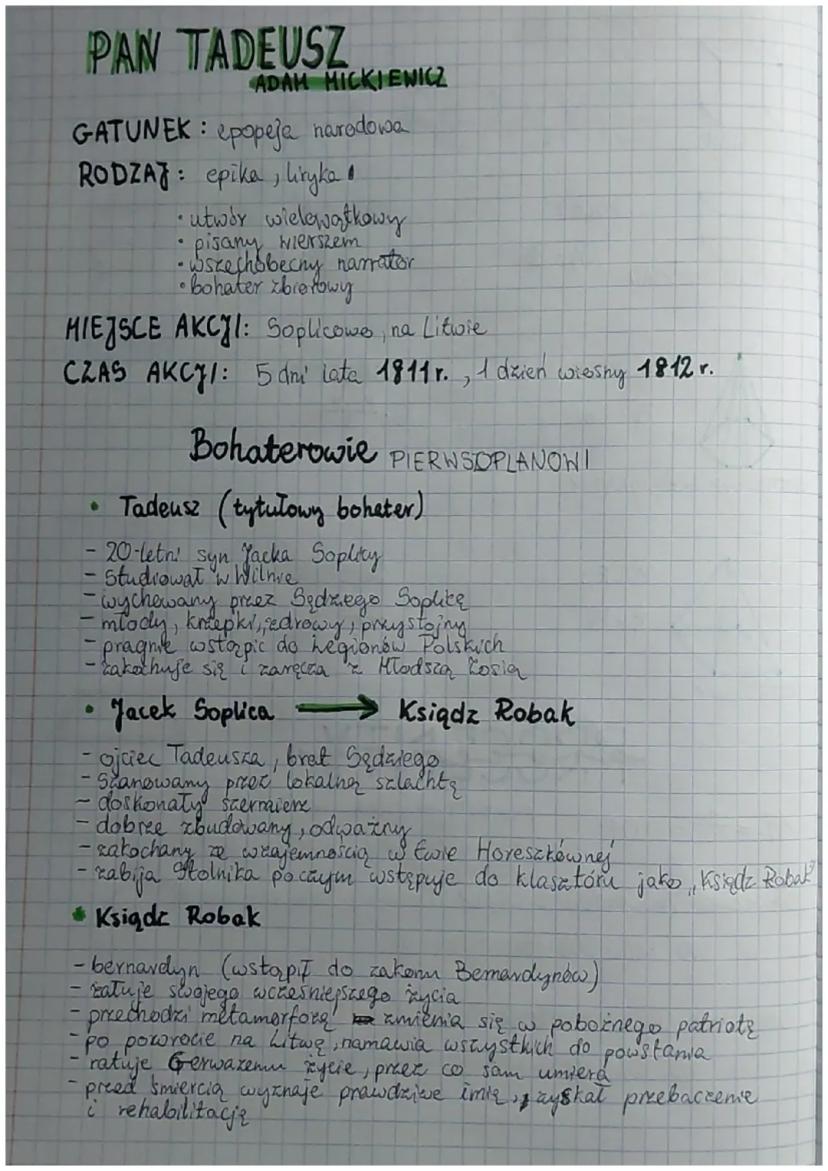 PAN TADEUSZ
ADAM MICKIEWICZ
GATUNEK: epopeja narodowa
RODZAJ: epika, liryka
• utwór wielowątkowy
• pisany wierszem
• wszechobecny narrator
• bohater zbiorowy
MIEJSCE AKCJI: Soplicowo, na Litwie
CZAS AKCJI: 5 dni lata 1811 r., 1 dzień wiosny 1812 r.
Bohaterowie PIERWSOPLANOWI
• Tadeusz (tytułowy bohater)
- 20-letni syn Jacka Soplicy
- Studiował w Wilnie
- wychowany przez Sędziego Soplicę
- młody, krzepki, zdrowy, przystojny
- pragnie wstąpić do Legionów Polskich
- zakochuje się i zaręcza z Młodszą Zosią
• Jacek Soplica → Ksiądz Robak
- ojciec Tadeusza, brat Sędziego
- Szanowany przez lokalną szlachtę
- doskonały szermierz
- dobrze zbudowany, odważny
- zakochany ze wzajemnością w Ewie Horeszkównej
- zabija Stolnika po czym wstępuje do klasztóru jako „Ksiądz Robak"
• Ksiądz Robak
- bernardyn (wstąpił do zakonu Bernardynów)
- żałuje swojego wcześniejszego życia
- przechodzi metamorfozę zmienia się w pobożnego patriotę
- po powrocie na Litwę, namawia wszystkich do powstania
- ratuje Gerwazemu życie, przez co sam umiera
- przed śmiercią wyznaje prawdziwe imię, zyskał przebaczenie
i rehabilitację